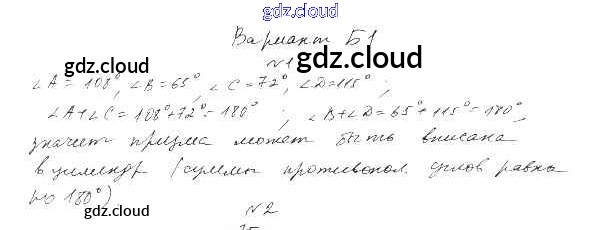 gdz.cloud
Вариант Б1
gdz.cloud
№1
gdz.cloud
∠A = 108°, ∠B = 65°, ∠C = 72°, ∠D = 115° ;
∠A+∠C = 108°+72° = 180° ; ∠B+∠D = 65°+115° = 180°,
значит призма может быть вписана
в цилиндр (суммы противопол. углов равны
по 180°)
gdz.cloud
№2